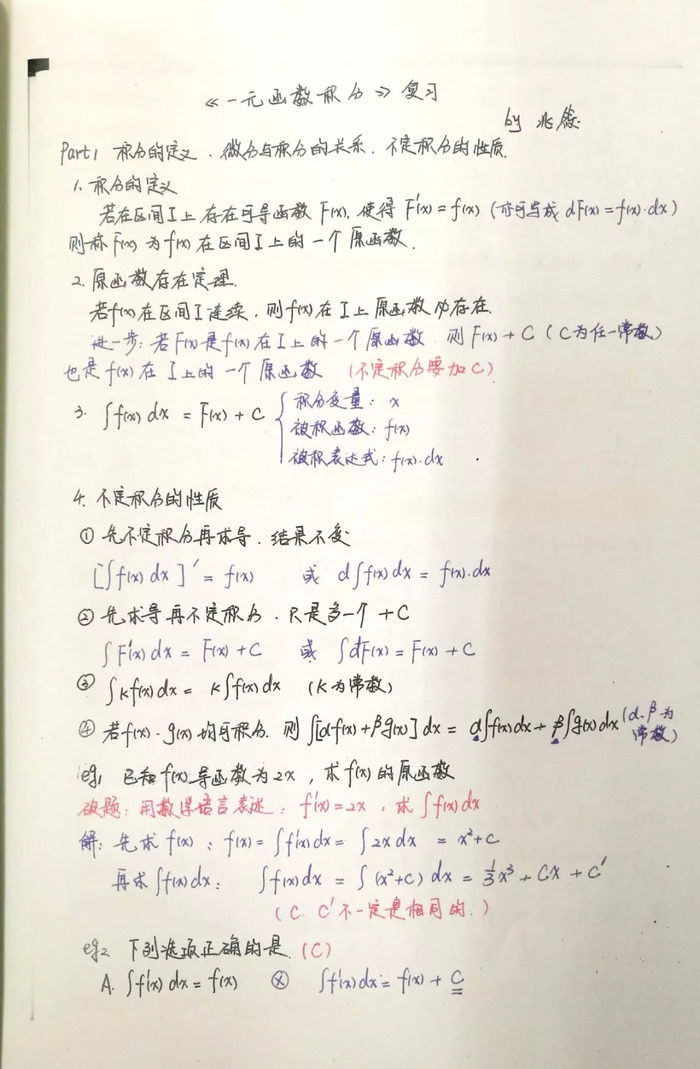 《一元函数积分》复习
by 兆
Part1 积分的定义、微分与积分的关系、不定积分的性质.
1. 积分的定义
若在区间I上存在可导函数F(x), 使得 F'(x)=f(x) (亦可写成 dF(x)=f(x)·dx)
则称F(x)为f(x)在区间I上的一个原函数.
2. 原函数存在定理.
若f(x)在区间I连续, 则f(x)在I上原函数必存在.
进一步: 若F(x)是f(x)在I上的一个原函数, 则F(x)+C (C为任一常数)
也是f(x)在I上的一个原函数 (不定积分要加C)
3. ∫f(x)dx = F(x)+C { 积分变量: x
被积函数: f(x)
被积表达式: f(x)·dx
4. 不定积分的性质
① 先不定积分再求导, 结果不变
[∫f(x)dx]' = f(x) 或 d∫f(x)dx = f(x)·dx
② 先求导再不定积分, 只是多一个 +C
∫F'(x)dx = F(x)+C 或 ∫dF(x) = F(x)+C
③ ∫kf(x)dx = k∫f(x)dx (k为常数)
④ 若f(x)、g(x)均可积分, 则∫[αf(x)+βg(x)]dx = α∫f(x)dx+β∫g(x)dx (α、β为常数)
eg1 已知f(x)导函数为2x, 求f(x)的原函数
破题: 用数学语言表述: f'(x)=2x, 求∫f(x)dx
解: 先求f(x): f(x)=∫f'(x)dx = ∫2xdx = x²+C
再求∫f(x)dx: ∫f(x)dx = ∫(x²+C)dx = ⅓x³+Cx+C'
(C、C'不一定是相同的.)
eg2 下列选项正确的是 (C)
A. ∫f'(x)dx = f(x) ⊗ ∫f'(x)dx = f(x)+C